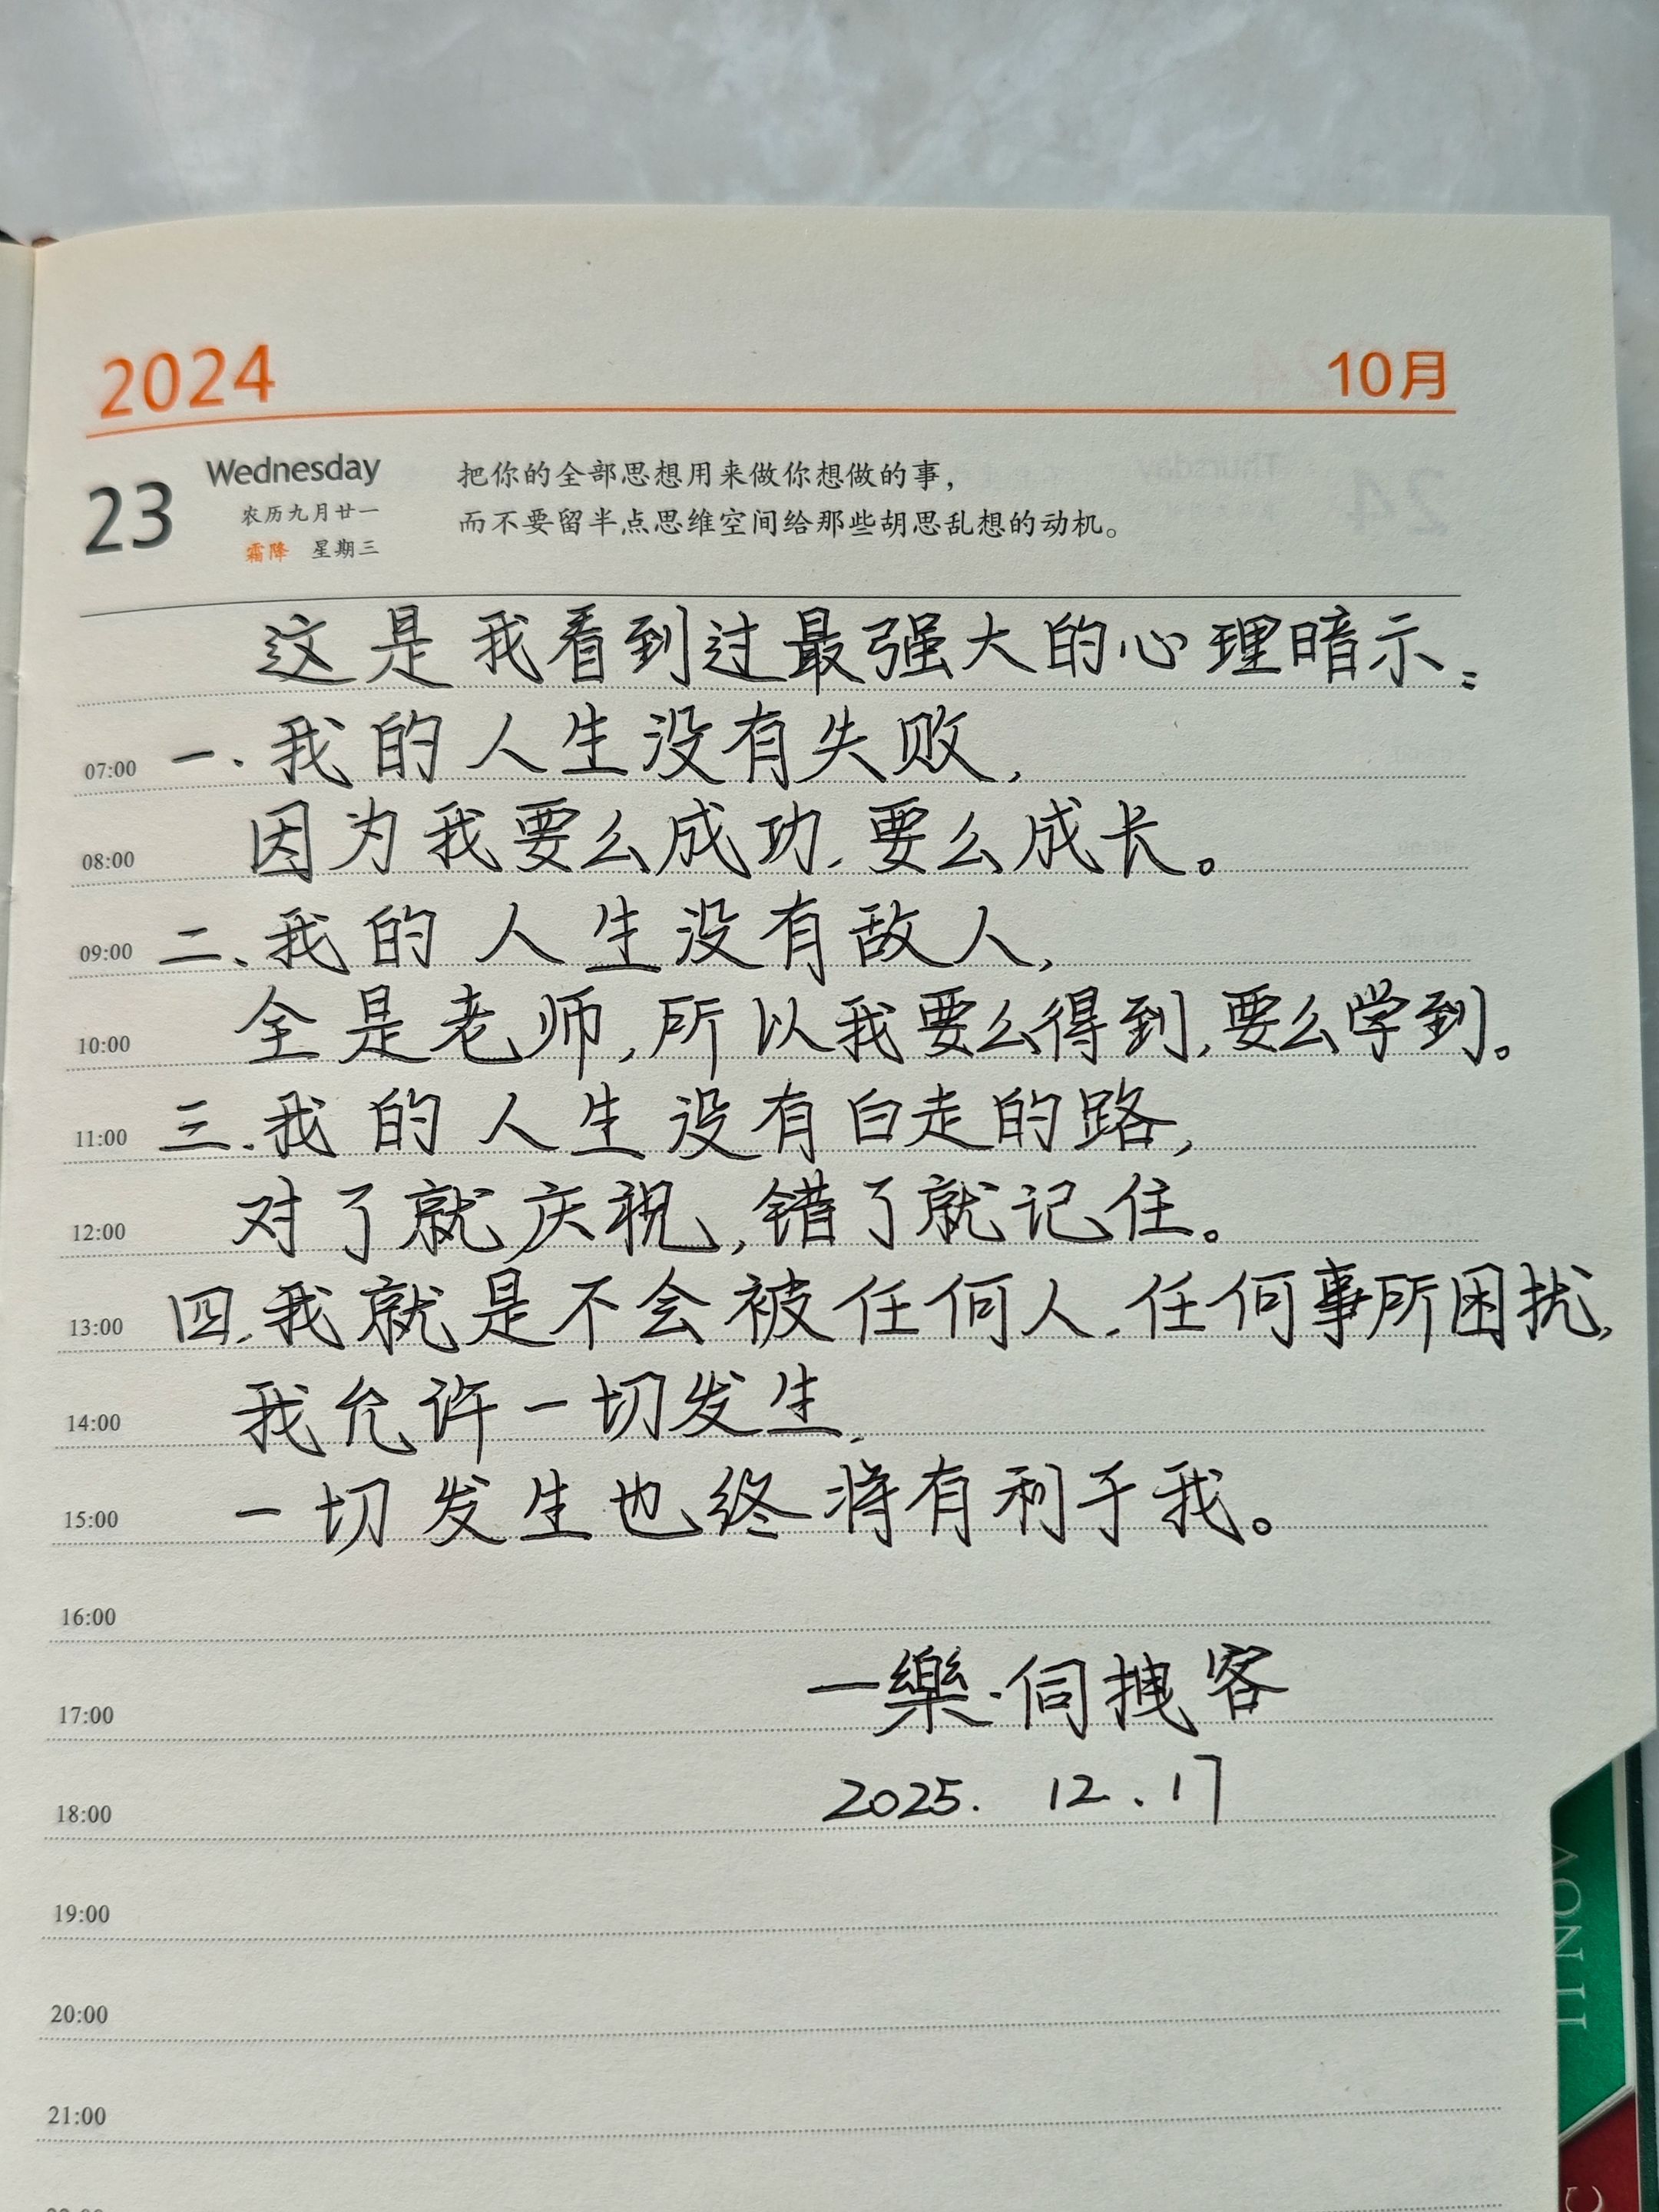 2024 10月
23 Wednesday
农历九月廿一
霜降 星期三
把你的全部思想用来做你想做的事，
而不要留半点思维空间给那些胡思乱想的动机。
这是我看到过最强大的心理暗示：
07:00 一、我的人生没有失败，
08:00 因为我要么成功，要么成长。
09:00 二、我的人生没有敌人，
10:00 全是老师，所以我要么得到，要么学到。
11:00 三、我的人生没有白走的路，
12:00 对了就庆祝，错了就记住。
13:00 四、我就是不会被任何人、任何事所困扰，
14:00 我允许一切发生，
15:00 一切发生也终将有利于我。
16:00
17:00 一樂·伺拽客
18:00 2025. 12. 17
19:00
20:00
21:00
11 NOV